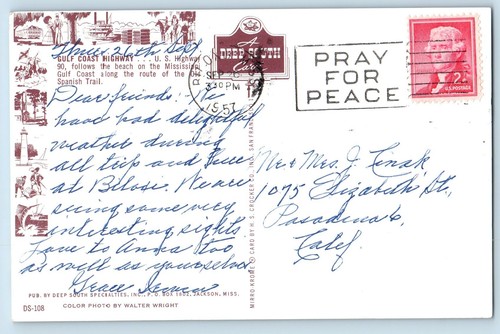 Thurs 26th Sept
GULF COAST HIGHWAY . . . U. S. Highway
90, follows the beach on the Mississippi
Gulf Coast along the route of the Old
Spanish Trail.
Dear friends: We
have had delightful
weather during
all trip and here
at Biloxi. We are
seeing some very
interesting sights
Love to Anna too
as well as yourselves
Grace
PUB. BY DEEP SOUTH SPECIALTIES, INC., P. O. BOX 1422, JACKSON, MISS.
DS-108
COLOR PHOTO BY WALTER WRIGHT
MIRRO-KROME ® CARD BY H. S. CROCKER CO., SAN FRAN
A
DEEP SOUTH
Card
SEP 26
3 30 PM
1957
PRAY
FOR
PEACE
2¢
U.S. POSTAGE
Mr & Mrs. J. Cenak,
1075 Elizabeth St.,
Pasadena 6,
Calif.